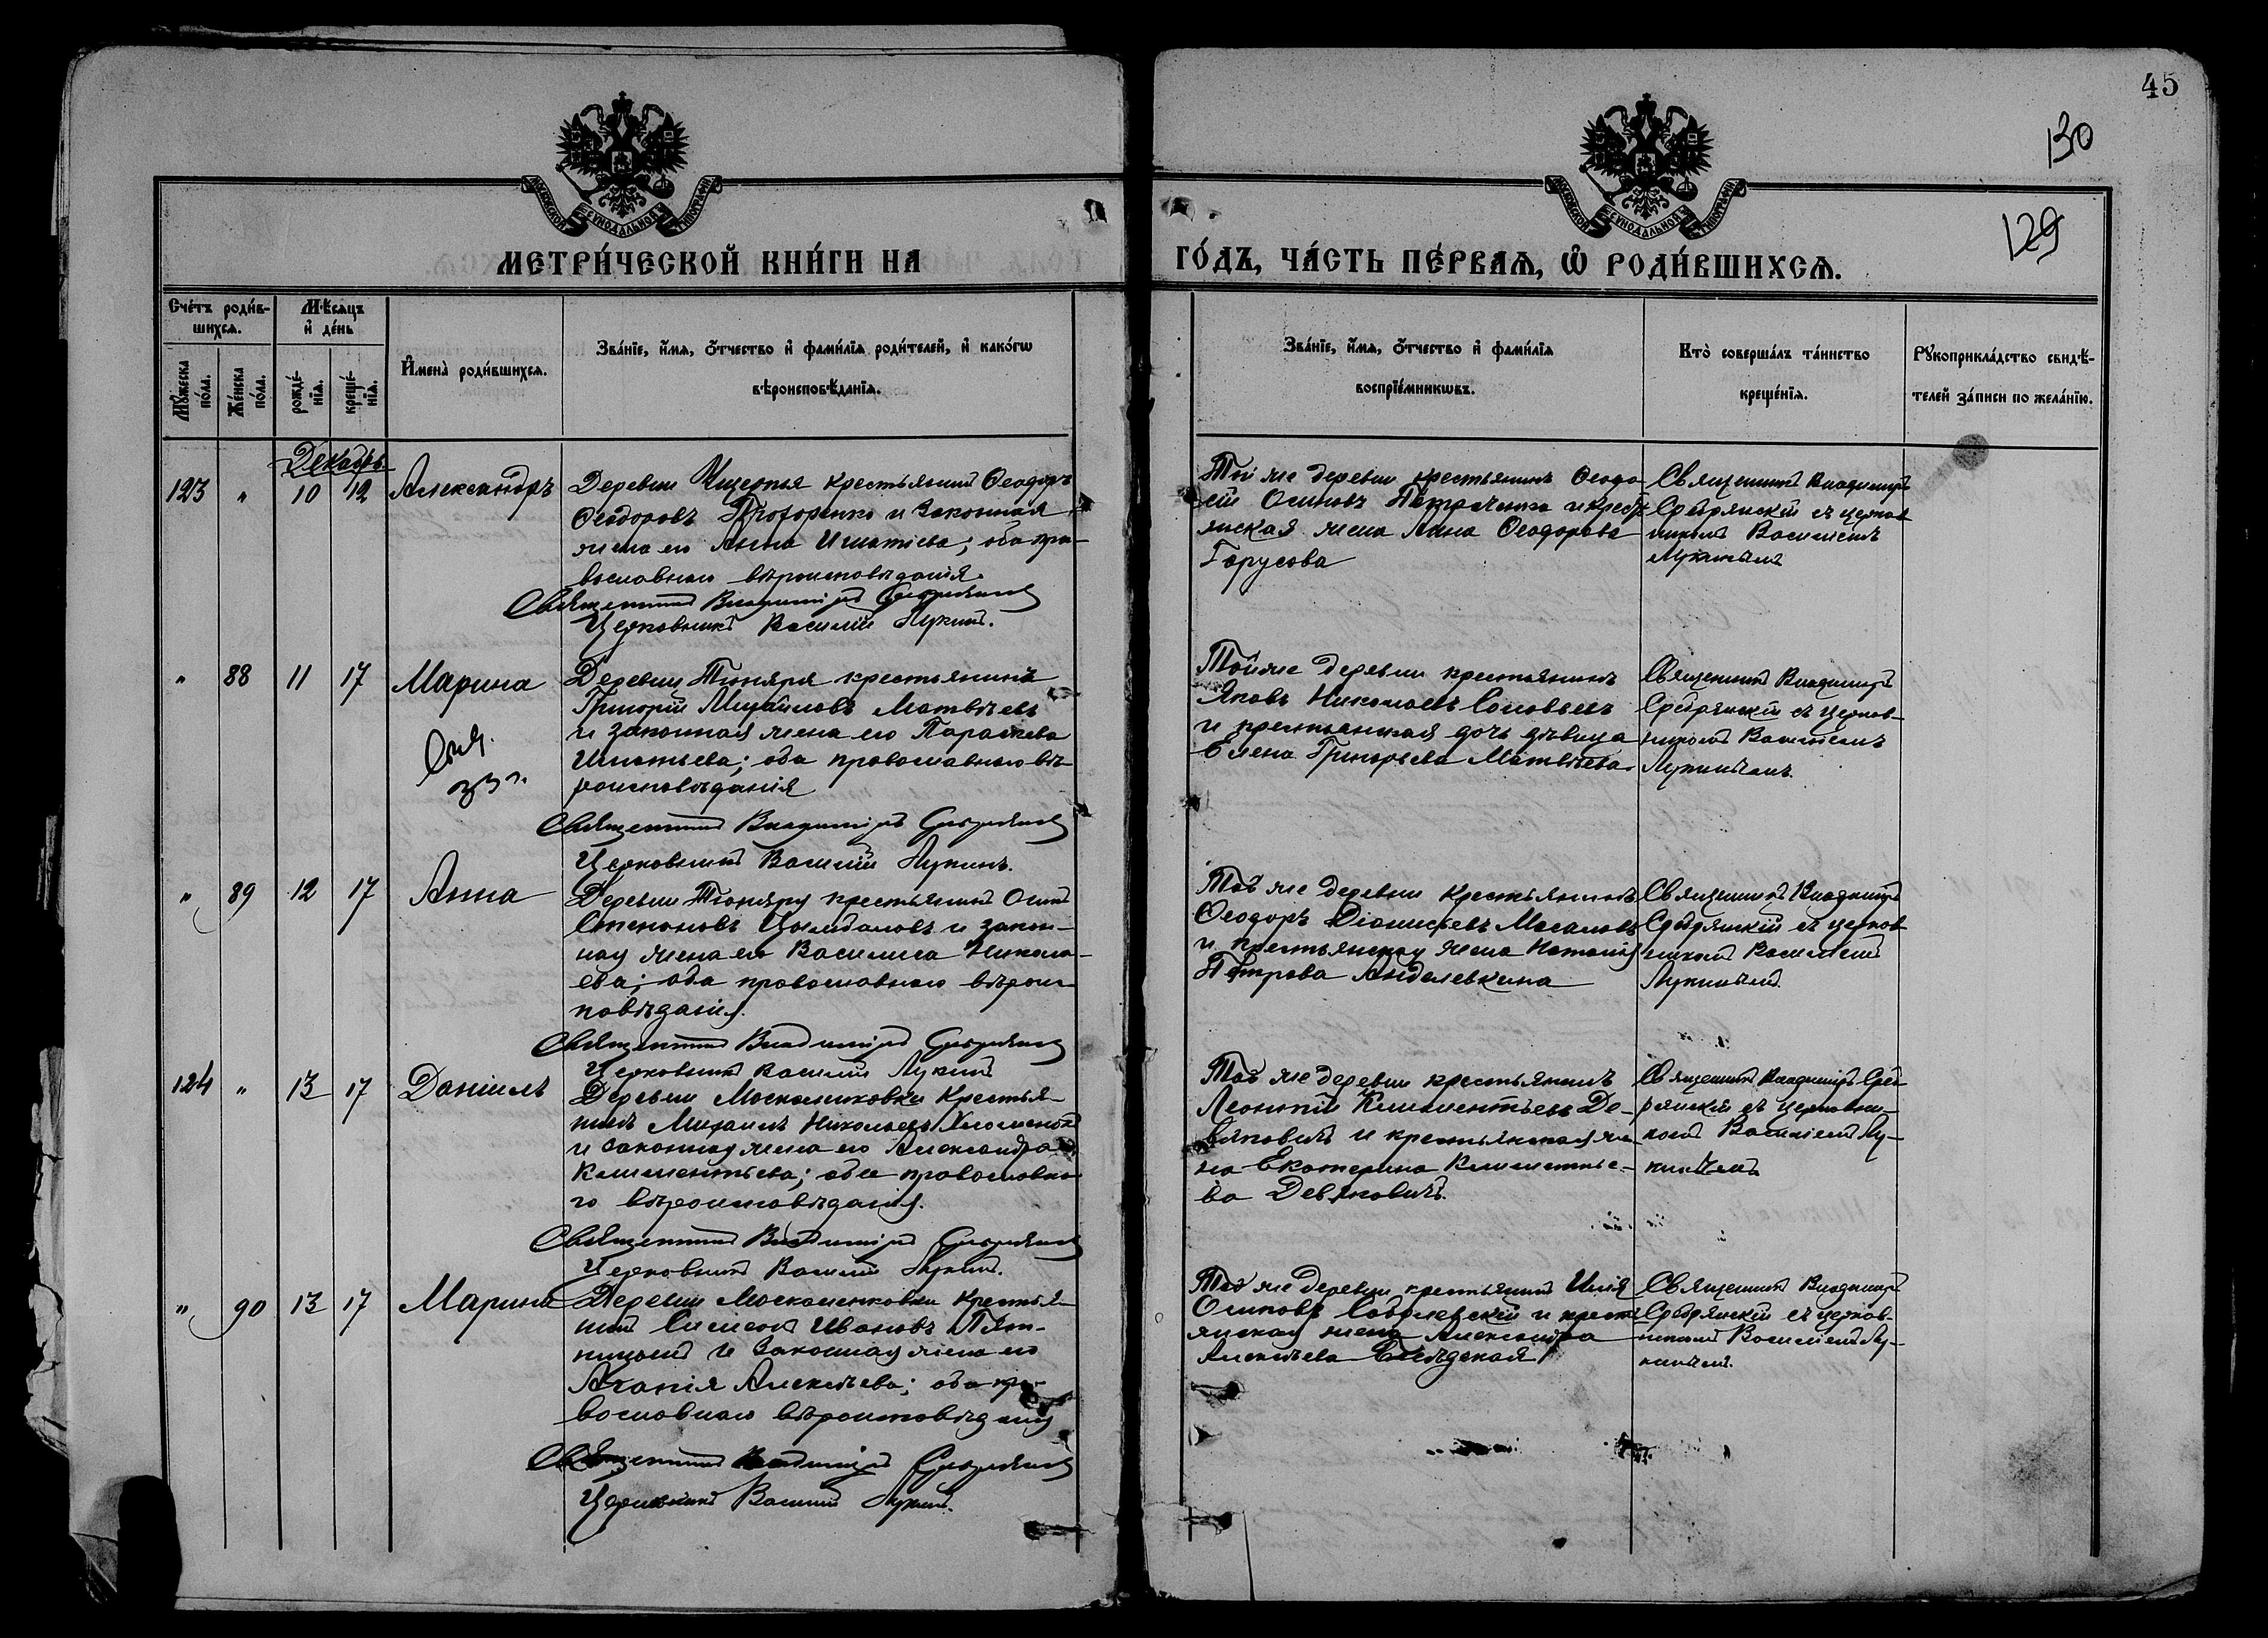 45
130
129
МОСКОВСКОЙ СѴНОДАЛЬНОЙ ТИПОГРАФІИ
МОСКОВСКОЙ СѴНОДАЛЬНОЙ ТИПОГРАФІИ
МЕТРИ́ЧЕСКОЙ КНИ́ГИ НА
ГО́ДЪ, ЧА́СТЬ ПЕ́РВАѦ, Ѡ РОДИ́ВШИХСѦ.
Сче́тъ роди́в-
шихсѧ.
Мѣ́сѧцъ
и де́нь
Мꙋ́жеска по́ла.
Же́нска по́ла.
рожде́-
нїѧ.
креще́-
нїѧ.
И҆мена̀ роди́вшихсѧ.
Зва́нїе, и҆́мѧ, ѻ҆́тчество и҆ фами́лїѧ роди́телей, и҆ како́гѡ
вѣроисповѣ́данїѧ.
Зва́нїе, и҆́мѧ, ѻ҆́тчество и҆ фами́лїѧ
воспрїе́мникѡвъ.
Кто̀ соверша́лъ та́инство
креще́нїѧ.
Рꙋкоприкла́дство свидѣ́-
телей за́писи по жела́нїю.
Декабрь
123 " 10 12 Александръ
Деревни крестьянинъ Ѳеодоръ
Ѳеодоровъ и законная
жена его Анна Игнатіева; оба пра-
вославнаго вѣроисповѣданія.
Священникъ Владиміръ
Церковникъ Василій Лукинъ.
Той же деревни крестьянинъ Ѳеодо-
сій Осиповъ и крестья-
янская жена Анна Ѳеодорова
Горусова
Священникъ Владиміръ
Сребрянскій съ церков-
никомъ Василіемъ
Лукинымъ
" 88 11 17 Марина
Деревни Тюняря крестьянинъ
Григорій Михайловъ Матвѣевъ
и законная жена его Параскева
Игнатьева; оба православнаго вѣ-
роисповѣданія
Священникъ Владиміръ
Церковникъ Василій Лукинъ.
Той же деревни крестьянинъ
Яковъ Николаевъ Соловьевъ
и крестьянская дочь дѣвица
Елена Григорьева Матвѣева.
Священникъ Владиміръ
Сребрянскій съ церков-
никомъ Василіемъ
Лукинымъ.
" 89 12 17 Анна
Деревни Тюняру крестьянинъ Осипъ
Степановъ и закон-
ная жена его Василиса Никола-
ева; оба православнаго вѣроис-
повѣданія.
Священникъ Владиміръ
Церковникъ Василій Лукинъ
Той же деревни крестьянинъ
Ѳеодоръ Діонисіевъ
и крестьянская жена Наталія
Петрова
Священникъ Владиміръ
Сребрянскій съ церков-
никомъ Василіемъ
Лукинымъ.
124 " 13 17 Даніилъ
Деревни Москаленковки крестья-
нинъ Михаилъ Николаевъ
и законная жена его Александра
Климентьева; оба православна-
го вѣроисповѣданія.
Священникъ Владиміръ
Церковникъ Василій Лукинъ.
Той же деревни крестьянинъ
Леонтій Климентьевъ Де-
вяковичъ и крестьянская же-
на Екатерина Климентье-
ва Девяковичъ.
Священникъ Владиміръ Среб-
рянскій съ церковни-
комъ Василіемъ Лу-
кинымъ
" 90 13 17 Марина
Деревни Москаленковки крестья-
нинъ Симеонъ Ивановъ
и законная жена его
Агапія Алексѣева; оба пра-
вославнаго вѣроисповѣданія
Священникъ Владиміръ
Церковникъ Василій Лукинъ.
Той же деревни крестьянинъ Илія
Осиповъ Соболевскій и кресть-
янская жена Александра
Алексѣева
Священникъ Владиміръ
Сребрянскій съ церков-
никомъ Василіемъ Лу-
кинымъ.